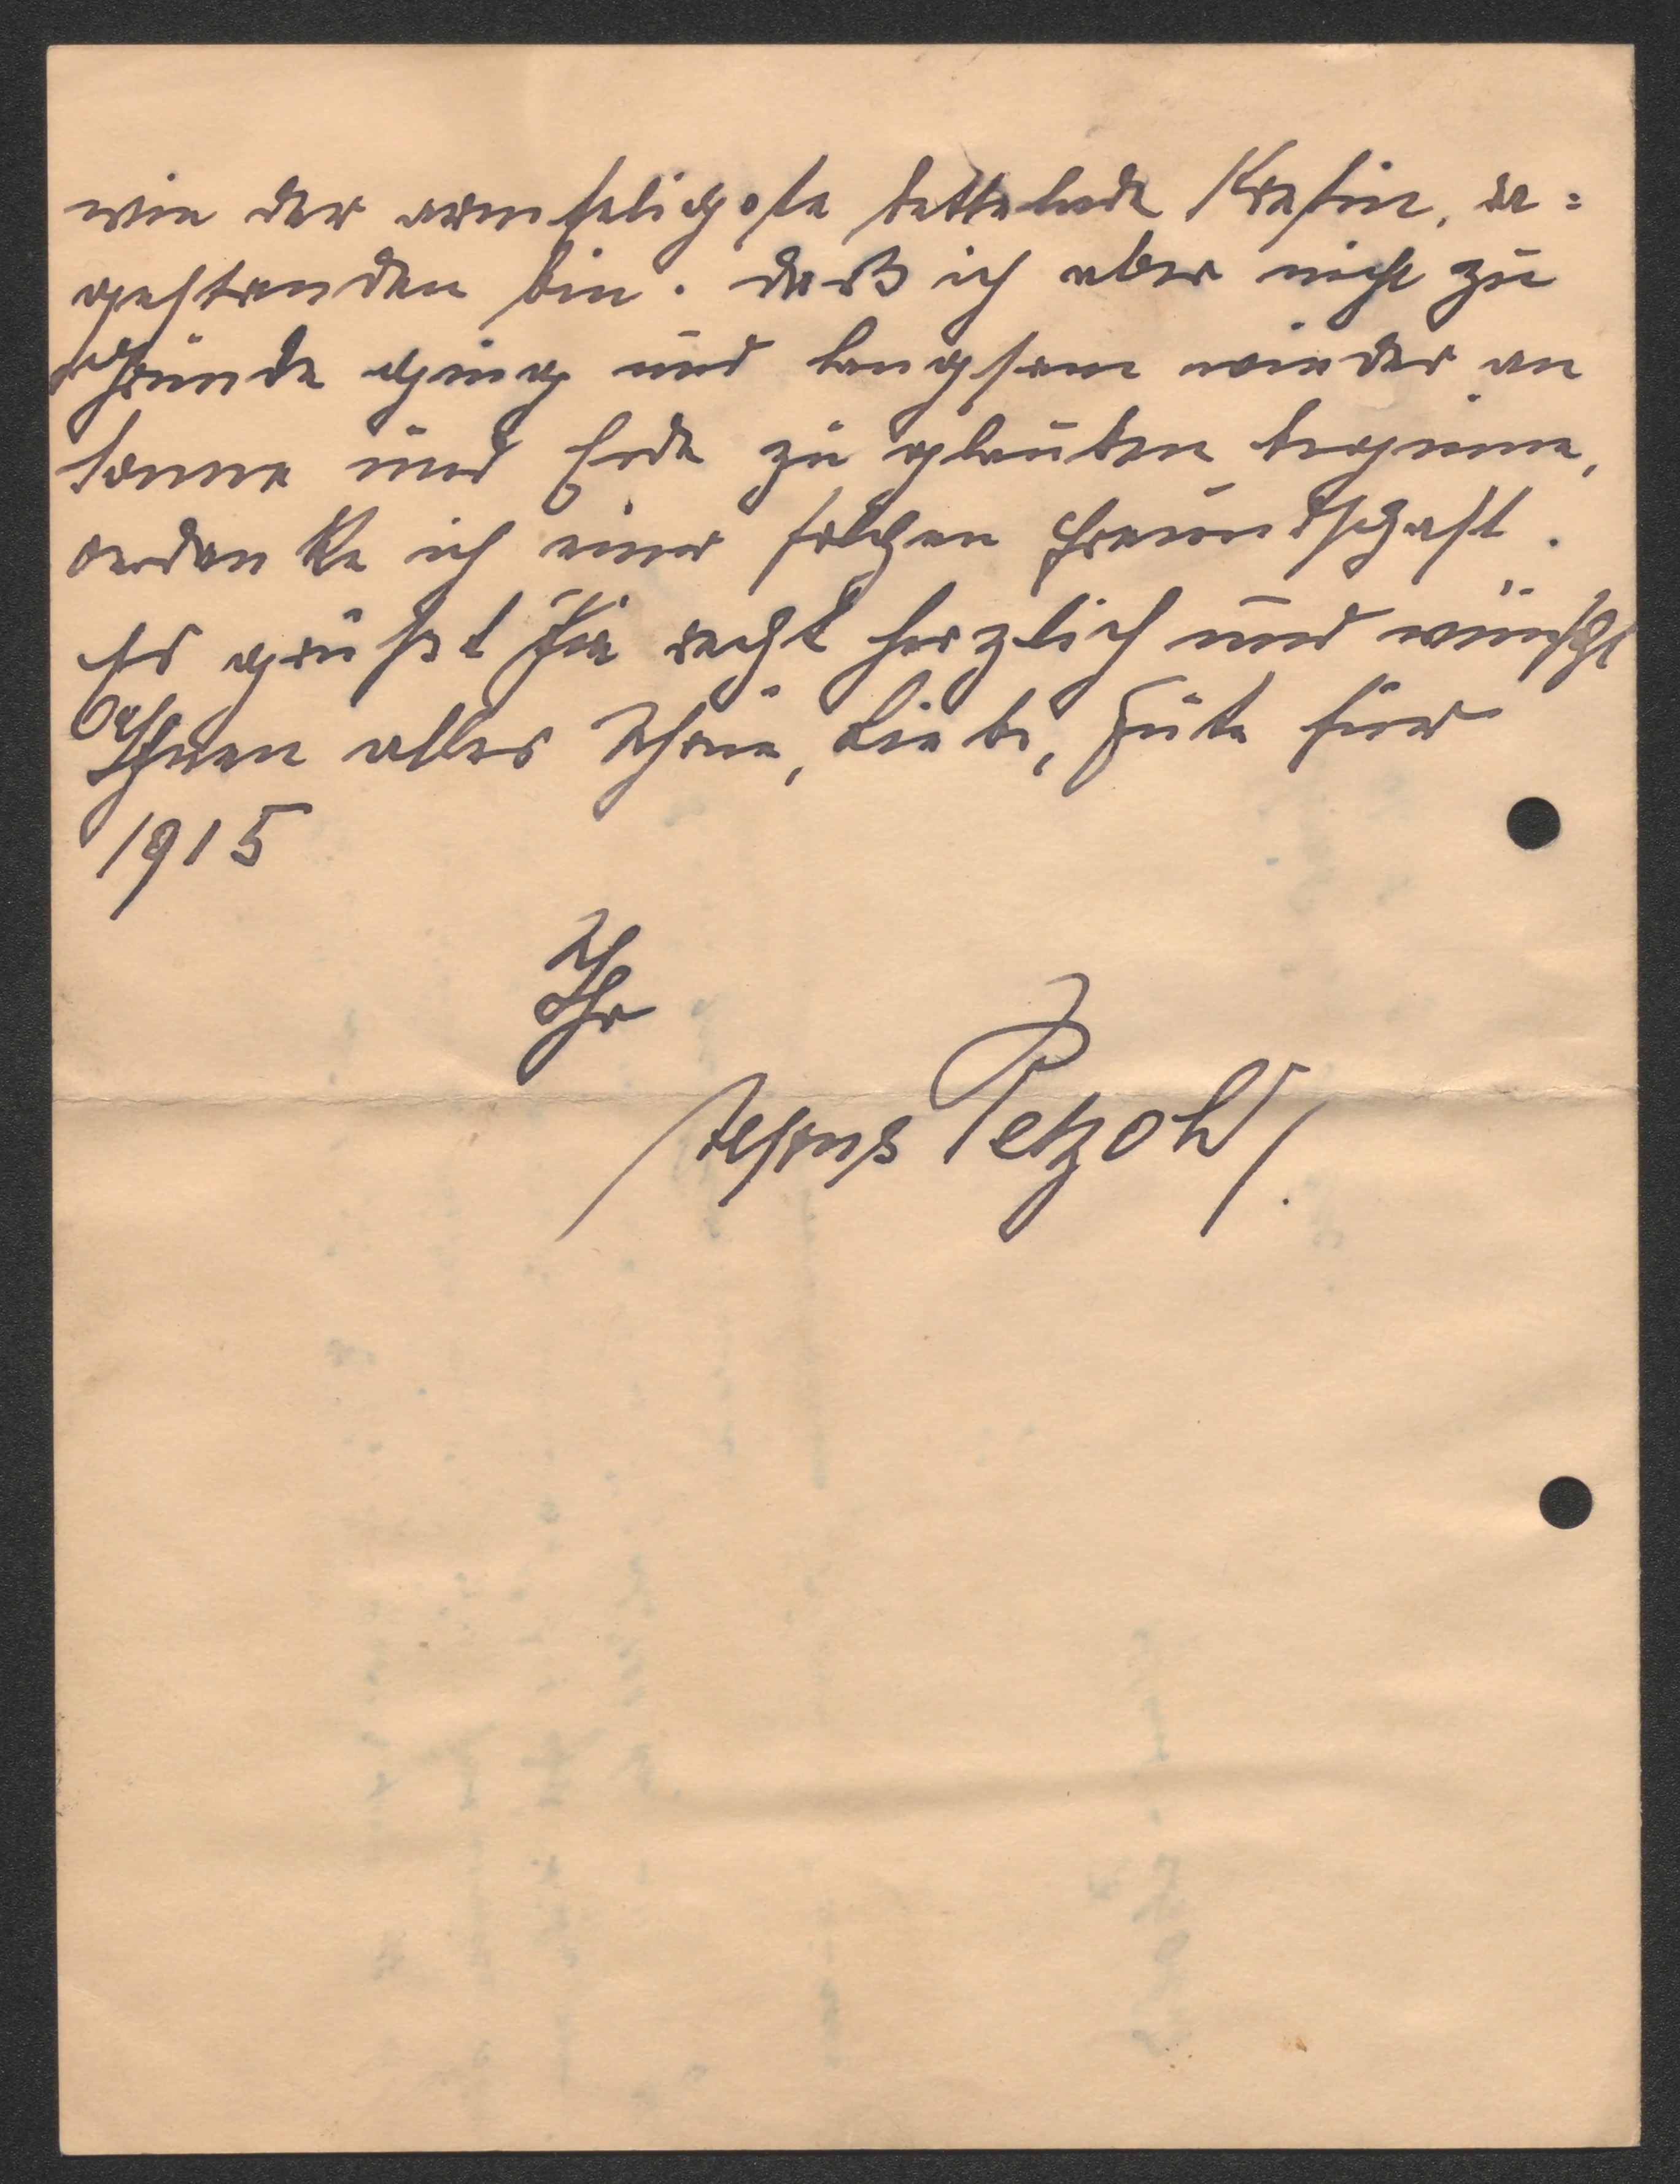 wie der armseligste bettelnde Krösus, da=
gestanden bin. daß ich aber nicht zu
Grunde ging und langsam wieder an
Sonne und Erde zu glauben beginne,
verdanke ich einer solchen Freundschaft.
Es grüßt Sie recht herzlich und wünscht
Ihnen alles Schöne, Liebe, Gute für
1915
Ihr
Alfons Petzold.